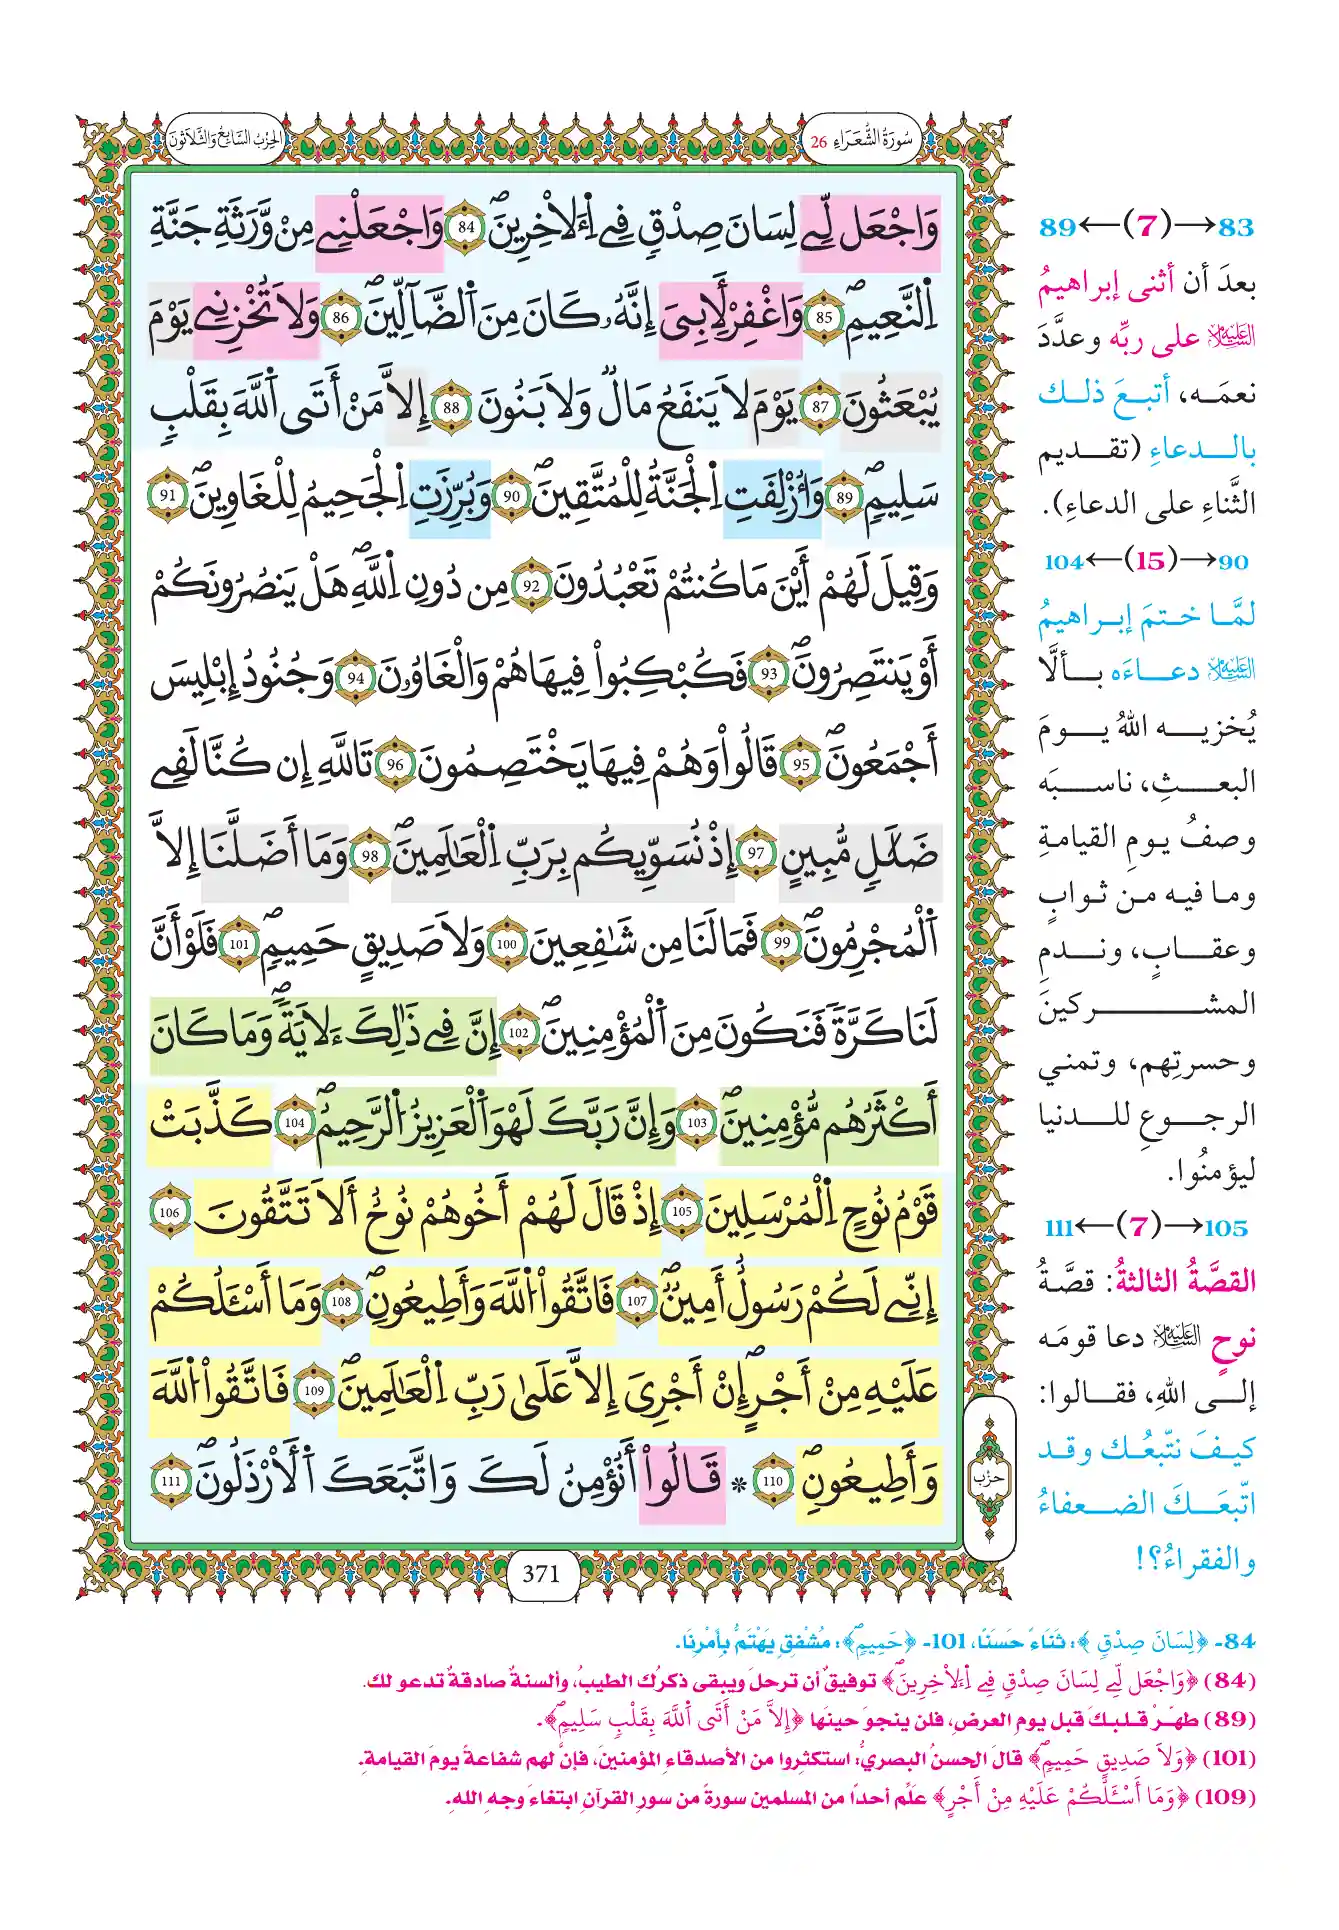 سُورَةُ الشُّعَرَاءِ 26
الحِزْبُ السَّابِعُ وَالثَّلَاثُونَ
وَاجْعَل لِّے لِسَانَ صِدْقٖ فِے اِ۬لَاخِرِينَۖ 84 وَاجْعَلْنِے مِنْ وَّرَثَةِ جَنَّةِ
اِ۬لنَّعِيمِۖ 85 وَاغْفِرْ لِأَبِيَ إِنَّهُۥ كَانَ مِنَ اَ۬لضَّآلِّينَۖ 86 وَلَا تُخْزِنِے يَوْمَ
يُبْعَثُونَ 87 يَوْمَ لَا يَنفَعُ مَالٞ وَلَا بَنُونَ 88 إِلَّا مَنْ أَتَى اَ۬للَّهَ بِقَلْبٖ
سَلِيمٖۖ 89 وَأُزْلِفَتِ اِ۬لْجَنَّةُ لِلْمُتَّقِينَۖ 90 وَبُرِّزَتِ اِ۬لْجَحِيمُ لِلْغَاوِينَۖ 91
وَقِيلَ لَهُمْ أَيْنَ مَا كُنتُمْ تَعْبُدُونَ 92 مِن دُونِ اِ۬للَّهِۖ هَلْ يَنصُرُونَكُمْ
أَوْ يَنتَصِرُونَۖ 93 فَكُبْكِبُواْ فِيهَا هُمْ وَالْغَاوُۥنَ 94 وَجُنُودُ إِبْلِيسَ
أَجْمَعُونَۖ 95 قَالُواْ وَهُمْ فِيهَا يَخْتَصِمُونَ 96 تَاللَّهِ إِن كُنَّا لَفِے
ضَلَٰلٖ مُّبِينٍ 97 إِذْ نُسَوِّيكُم بِرَبِّ اِ۬لْعَٰلَمِينَۖ 98 وَمَا أَضَلَّنَا إِلَّا
اَ۬لْمُجْرِمُونَۖ 99 فَمَا لَنَا مِن شَٰفِعِينَ 100 وَلَا صَدِيقٍ حَمِيمٖۖ 101 فَلَوْ أَنَّ
لَنَا كَرَّةٗ فَنَكُونَ مِنَ اَ۬لْمُؤْمِنِينَۖ 102 إِنَّ فِے ذَٰلِكَ ءَلَايَةٗۖ وَمَا كَانَ
أَكْثَرُهُم مُّؤْمِنِينَۖ 103 وَإِنَّ رَبَّكَ لَهُوَ اَ۬لْعَزِيزُ اُ۬لرَّحِيمُۖ 104 كَذَّبَتْ
قَوْمُ نُوحٍ اِ۬لْمُرْسَلِينَ 105 إِذْ قَالَ لَهُمْ أَخُوهُمْ نُوحٌ أَلَا تَتَّقُونَ 106
إِنِّے لَكُمْ رَسُولٌ أَمِينٞۖ 107 فَاتَّقُواْ اُ۬للَّهَ وَأَطِيعُونِۖ 108 وَمَا أَسْـَٔلُكُمْ
عَلَيْهِ مِنْ أَجْرٍۖ إِنْ أَجْرِيَ إِلَّا عَلَىٰ رَبِّ اِ۬لْعَٰلَمِينَۖ 109 فَاتَّقُواْ اُ۬للَّهَ
وَأَطِيعُونِۖ 110 * قَالُواْ أَنُؤْمِنُ لَكَ وَاتَّبَعَكَ اَ۬لْأَرْذَلُونَۖ 111
حزْب
371
89←(7)→83
بعدَ أن أثنى إبراهيمُ
عليه السلام على ربِّه وعدَّدَ
نعمَـه، أتبـعَ ذلـك
بالـدعاءِ (تقـديم
الثَّناءِ على الدعاءِ).
104←(15)→90
لمَّـا ختمَ إبـراهيمُ
عليه السلام دعـاءَه بـألَّا
يُخزيـه اللهُ يـومَ
البعـثِ، ناسـبَه
وصفُ يـومِ القيامةِ
وما فيه مـن ثـوابٍ
وعقـابٍ، ونـدمِ
المشـركينَ
وحسرتِهم، وتمني
الرجـوعِ للـدنيا
ليؤمنُوا.
111←(7)→105
القصَّةُ الثالثةُ: قصَّةُ
نوحٍ عليه السلام دعا قومَـه
إلـى اللهِ، فقـالوا:
كيـفَ نتّبعُـك وقـد
اتّبعَـكَ الضـعفاءُ
والفقراءُ؟!
84- ﴿لِسَانَ صِدْقٖ﴾: ثَنَاءً حَسَنًا، 101- ﴿حَمِيمٖۖ﴾: مُشْفِقٍ يَهْتَمُّ بِأَمْرِنَا.
(84) ﴿وَاجْعَل لِّے لِسَانَ صِدْقٖ فِے اِ۬لَاخِرِينَۖ﴾ توفيقٌ أن ترحلَ ويبقى ذكرُك الطيبُ، وألسنةٌ صادقةٌ تدعو لك.
(89) طهِّرْ قلبكَ قبل يومِ العرضِ، فلن ينجوَ حينَها ﴿إِلَّا مَنْ أَتَى اَ۬للَّهَ بِقَلْبٖ سَلِيمٖۖ﴾.
(101) ﴿وَلَا صَدِيقٍ حَمِيمٖۖ﴾ قالَ الحسنُ البصريُّ: استكثِروا من الأصدقاءِ المؤمنينَ، فإنَّ لهم شفاعةً يومَ القيامةِ.
(109) ﴿وَمَا أَسْـَٔلُكُمْ عَلَيْهِ مِنْ أَجْرٍ﴾ علِّم أحدًا من المسلمين سورةً من سورِ القرآنِ ابتغاءَ وجهِ اللهِ.